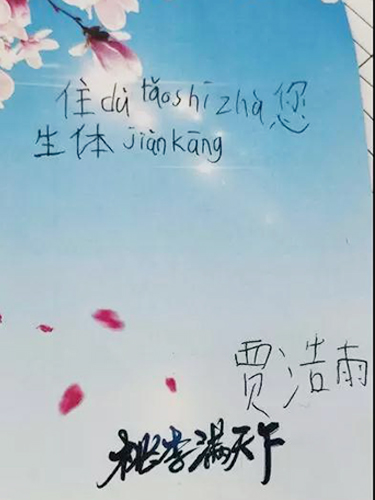 住dù lǎoshī zhà您
生体jiànkāng
贾浩雨
桃李满天下